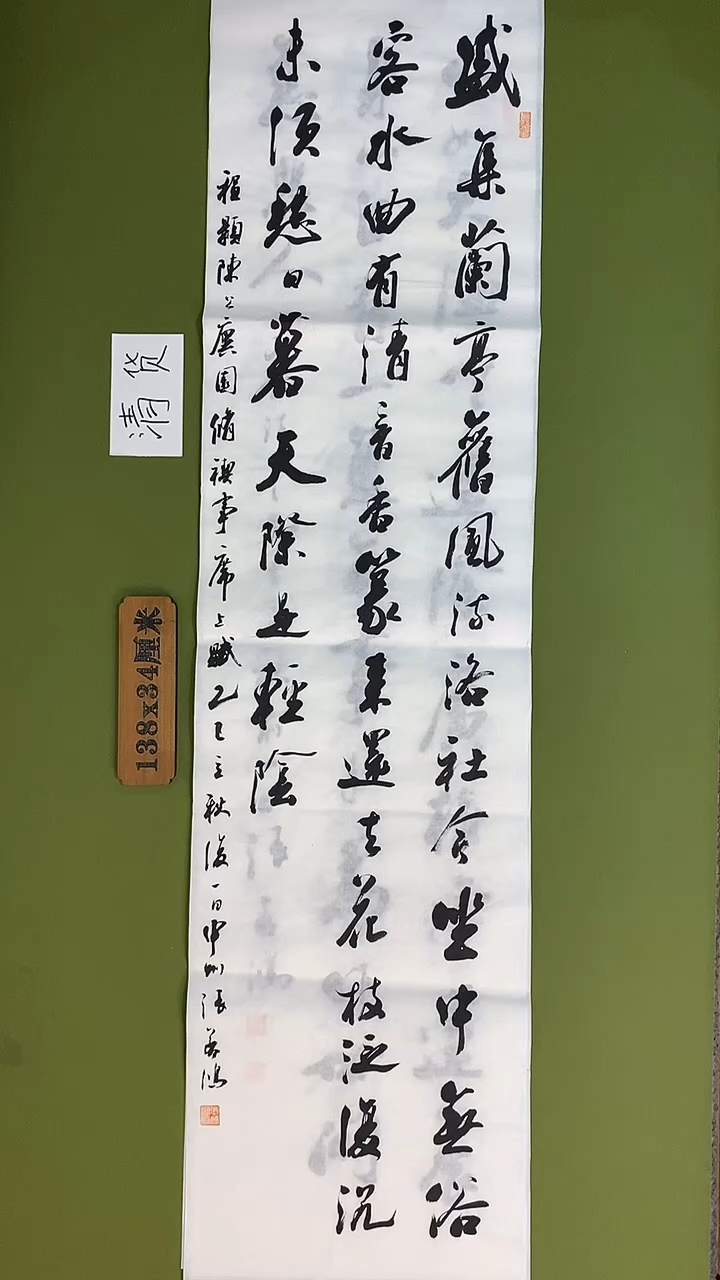 盛集蘭亭舊風流洛社今坐中無俗
客水曲有清音香篆來還去花枝泛復沉
未須愁日暮天際是輕陰
程顥陳公廙園脩禊事席上賦乙巳立秋後一日中州張
清货
138x34厘米